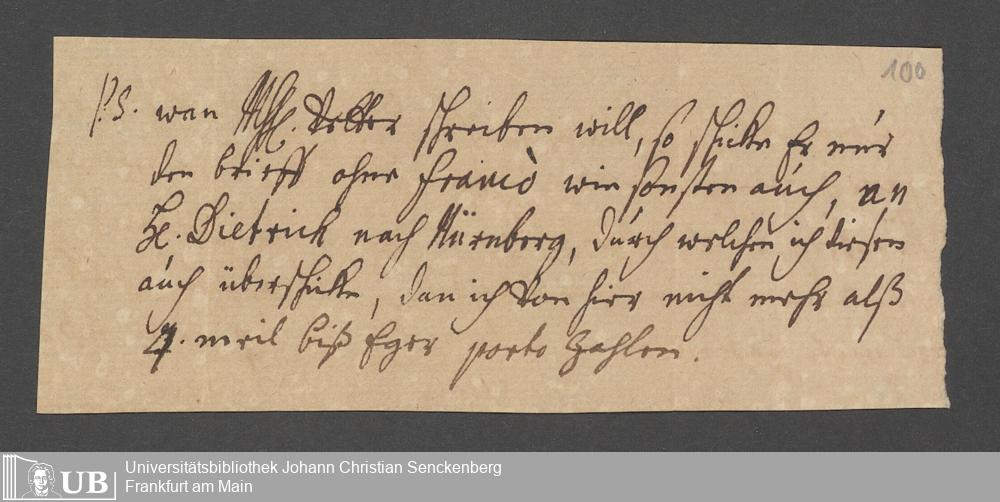 100
P.S. wan Vetter schreiben will, so schicke Er nur
den brieff ohne franco wie sonsten auch, an
H. Dietrich nach Nürnberg, durch welchen ich diesen
auch überschicke, dan ich von hier nicht mehr alß
4. meil biß Eger porto zahlen.
UB
Universitätsbibliothek Johann Christian Senckenberg
Frankfurt am Main